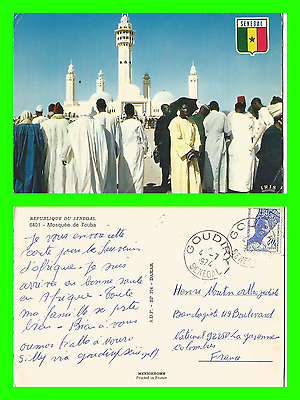 SENEGAL
IRIS
REPUBLIQUE DU SENEGAL
6401 - Mosquée de Touba
Je vous envoie cette
carte pour le Souvenir
d'afrique. Je suis
arrivé en bonne santé
en Afrique. Toute
ma famille se porte
bien. Bien à vous
Silly via goudiry Sénégal
A.D.P. - BP - DAKAR
MEXICHROME
Printed in France
GOUDIRY
4 - 7
1974
SENEGAL
GOUDIRY
Boulevard
National 92250 La garenne
colombes
France